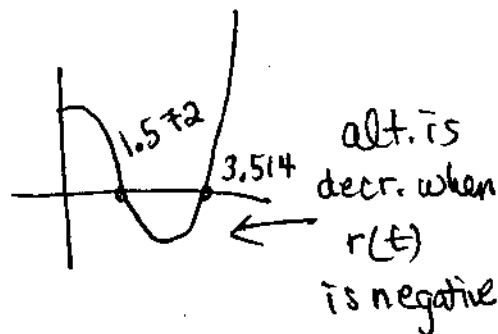 1.572
3.514
alt. is
decr. when
r(t)
is negative